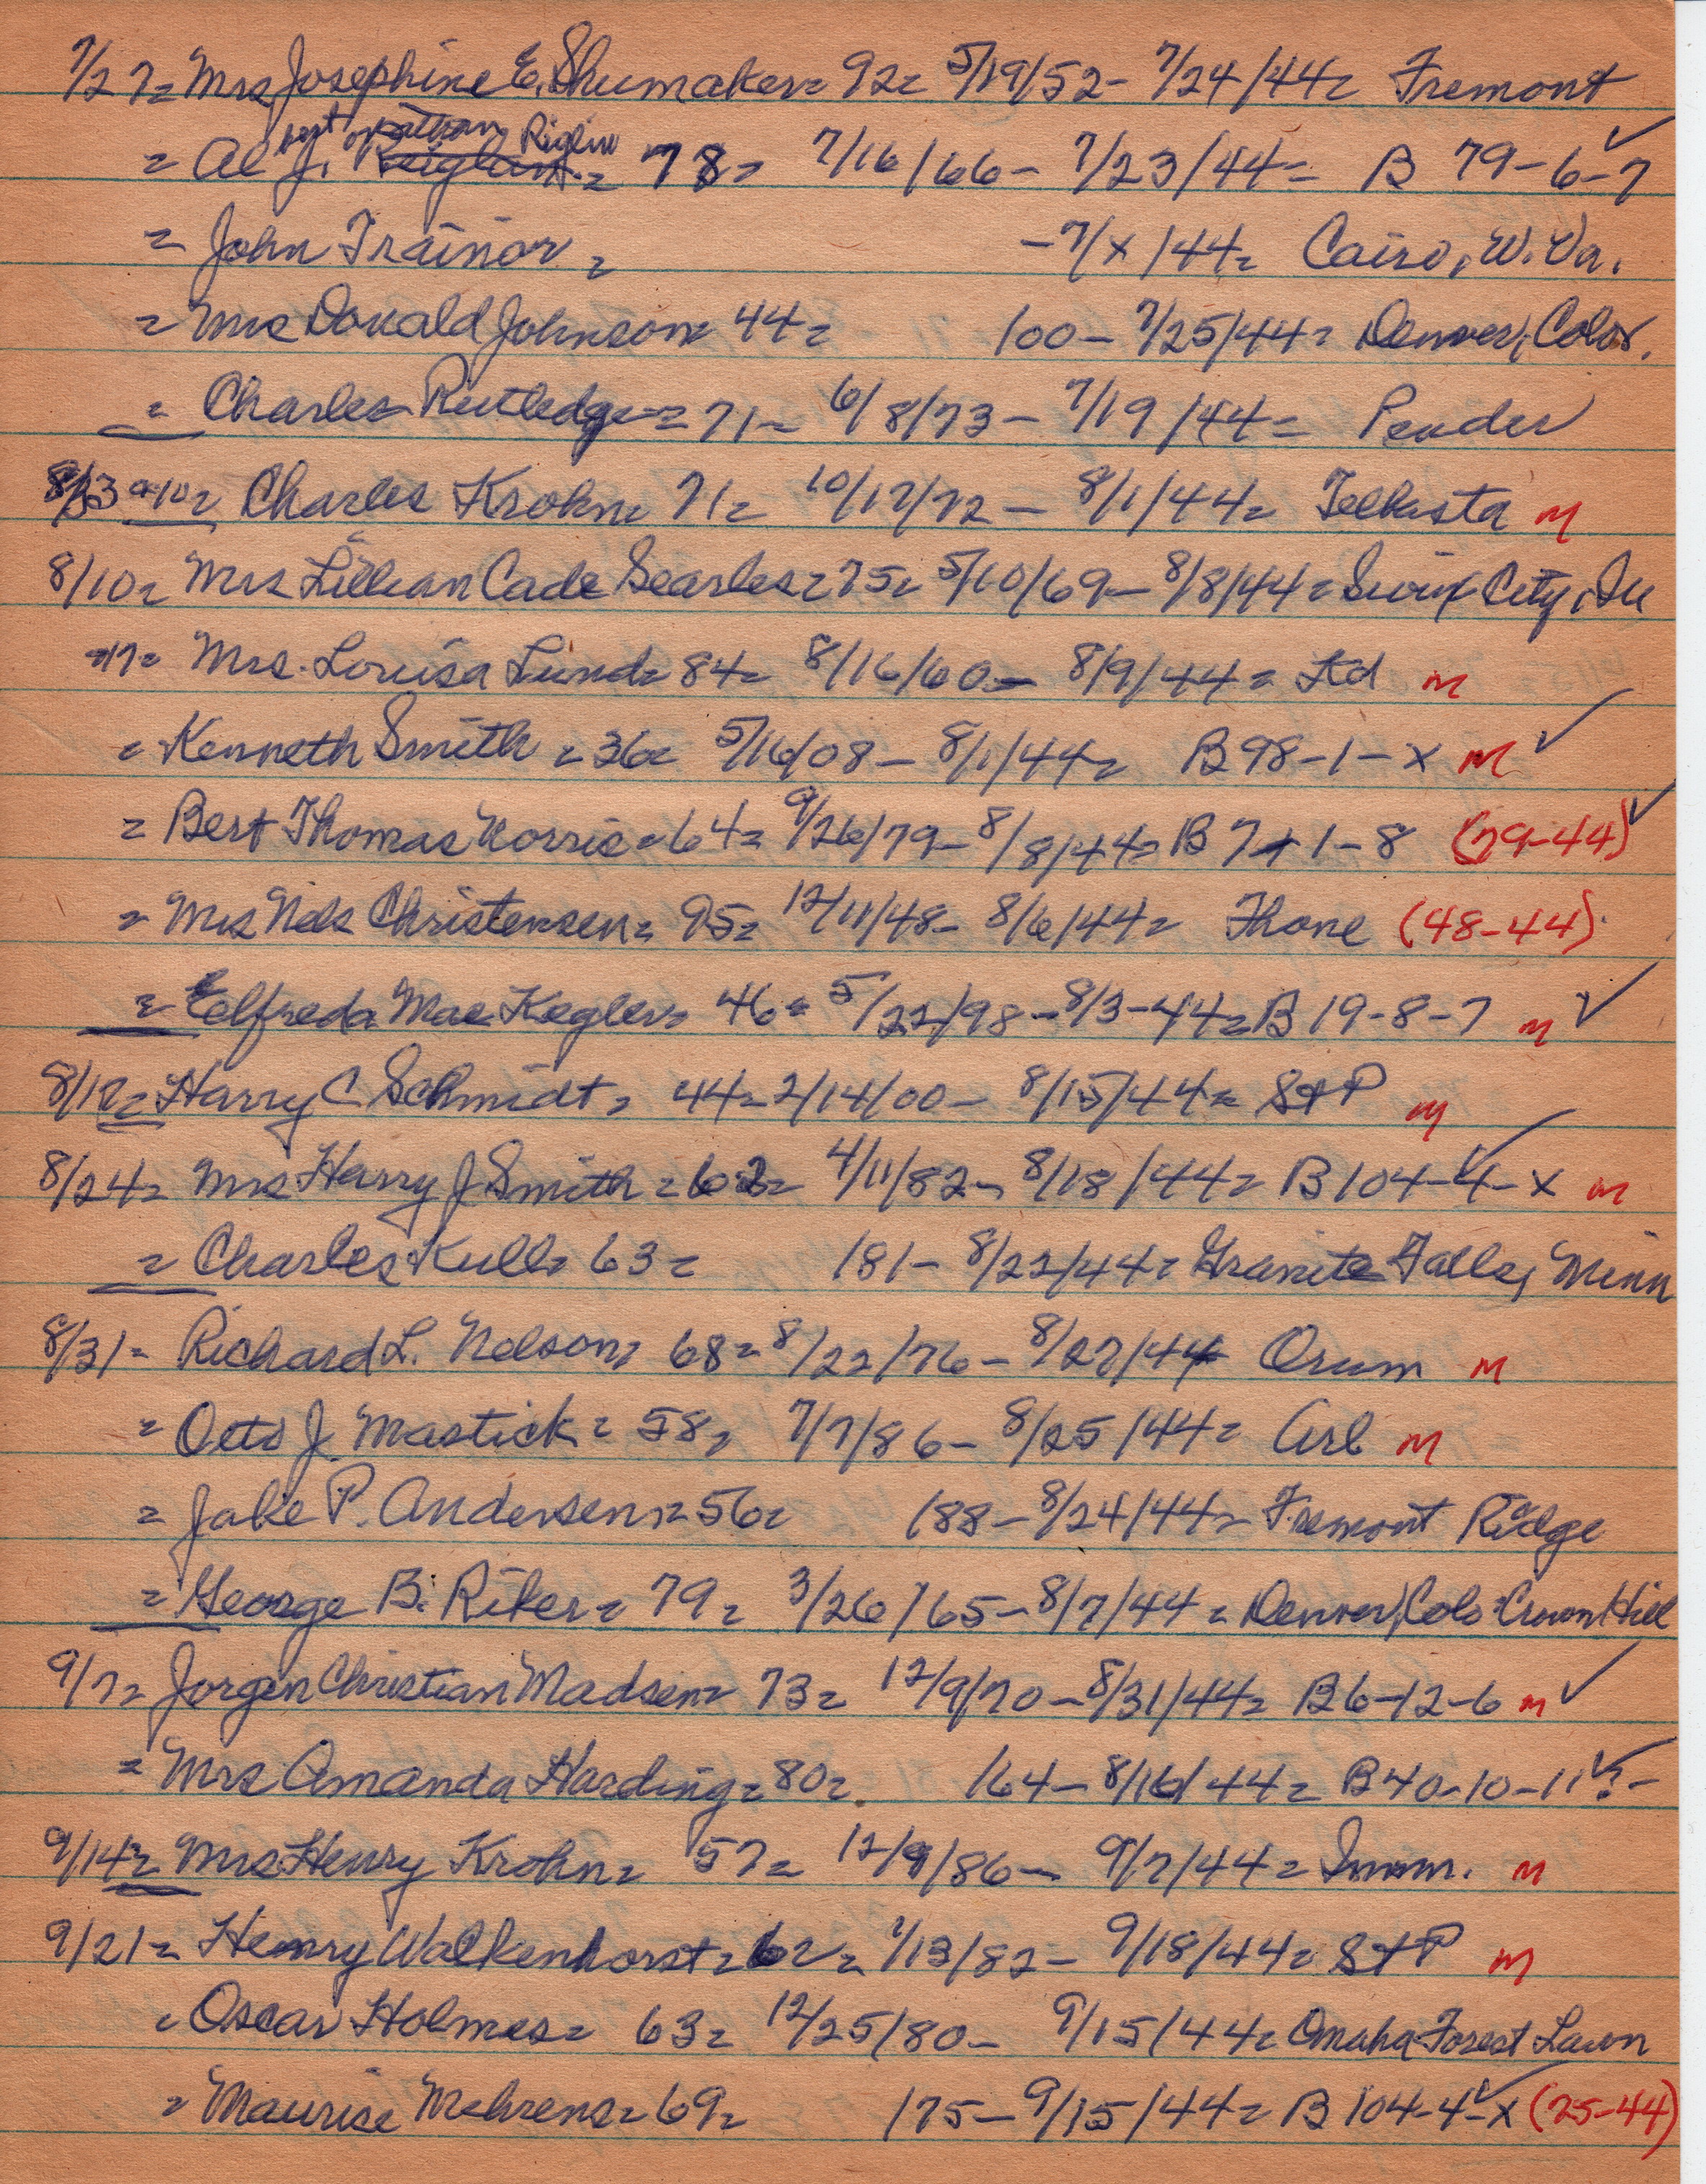 7/27= Mrs Josephine E. Shumaker= 92= 5/19/52- 7/24/44= Fremont
= Al J. Riglin = 78= 7/16/66- 7/23/44= B 79-6-7 ✓
= John Trainor = -7/x/44= Cairo, W. Va.
= Mrs Donald Johnson= 44= 100- 7/25/44= Denver, Color.
= Charles Rutledge= 71- 6/8/73- 7/19/44= Pender
8/3 &10= Charles Krohn= 71= 10/17/72- 8/1/44= Telbasta M
8/10= Mrs Lillian Cade Searles= 75= 5/10/69- 8/8/44= Sioux City, Ia
17= Mrs. Louisa Lund= 84= 8/16/60- 8/9/44= Kd M
= Kenneth Smith = 36= 5/16/08- 8/1/44= B 98-1-x M ✓
= Bert Thomas Norris= 64= 9/26/79- 8/8/44= B 7+1-8 (79-44) ✓
= Mrs Nels Christensen= 95= 12/11/48- 8/6/44= Thone (48-44)
= Elfreda Mae Kegler= 46= 5/22/98- 8/3-44= B 19-8-7 M ✓
8/17= Harry C Schmidt= 44= 2/14/00- 8/15/44= St P M
8/24= Mrs Harry J Smith= 62= 4/11/82- 8/18/44= B 104-4-x ✓ M
= Charles Kull= 63= 181- 8/22/44= Granite Falls, Minn
8/31= Richard L. Nelson= 68= 8/22/76- 8/27/44 Orum M
= Otto J. Mastick= 58= 7/7/86- 8/25/44= Arl M
= Jake P. Andersen= 56= 188- 8/24/44= Fremont Ridge
= George B. Riker= 79= 3/26/65- 8/7/44= Denver, Colo=Crown Hill
9/7= Jorgen Christian Madsen= 73= 12/9/70- 8/31/44= B6-12-6 M ✓
= Mrs Amanda Harding= 80= 164- 8/16/44= B 40-10-11 ✓?-
9/14= Mrs. Henry Krohn= 57= 12/9/86- 9/7/44= Imm. M
9/21= Henry Walkenhorst= 62= 1/13/82- 9/18/44= St P M
= Oscar Holmes= 63= 12/25/80- 9/15/44= Omaha Forest Lawn
= Maurise Mehrens= 69= 175- 9/15/44= B 104-4-x ✓ (75-44)